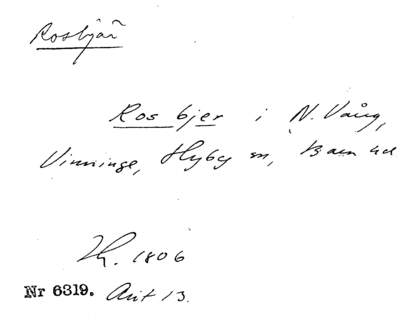 Rosbjär
Ros bjer i N. Vång,
Vinninge, Hyby sn, Bara hd
1806
Nr 6319. Avt 13.